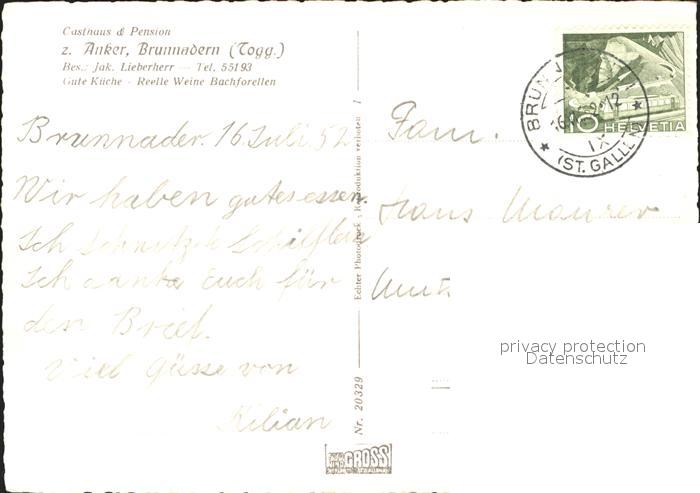 Gasthaus & Pension
z. Anker, Brunnadern (Togg.)
Bes.: Jak. Lieberherr — Tel. 55193
Gute Küche - Reelle Weine Bachforellen
Brunnader. 16. Juli. 52
Wir haben gutes essen.
Ich schnitzte Schiflein
Ich danke Euch für
den Brief.
Viel Güsse von
Kilian
Echter Photodruck - Reproduktion verboten
Nr. 20329
GROSS
Fam.
Hans Maurer
10 HELVETIA
BRUN
(ST. GALLEN)
privacy protection
Datenschutz